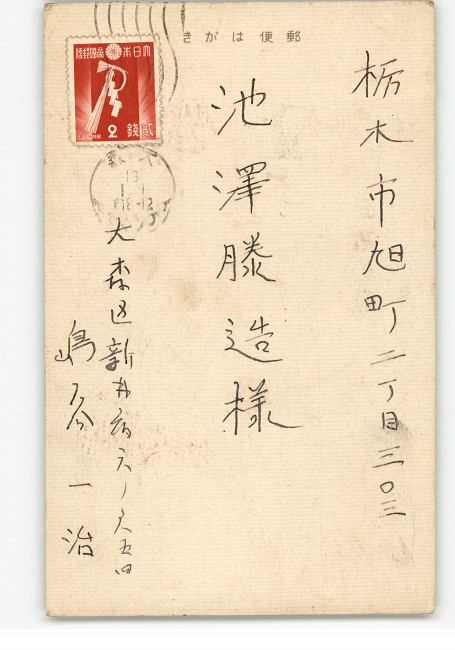 郵便はがき
大日本帝國郵便
2 貮錢
13
1 1
栃木市旭町二丁目三〇三
池澤藤造様
大森区新井宿六ノ五四
嶋 一治